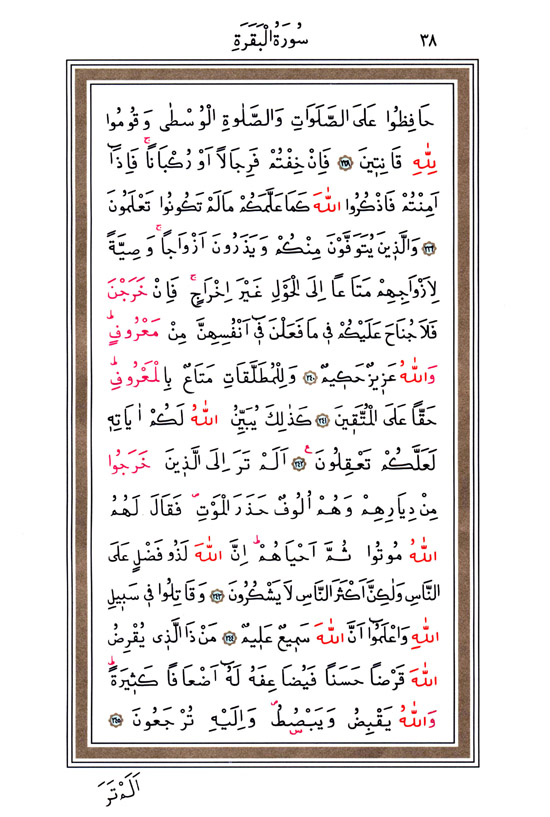 ٣٨ سُورَةُ الْبَقَرَةِ
حَافِظُوا عَلَى الصَّلَوَاتِ وَالصَّلٰوةِ الْوُسْطٰى وَقُومُوا
لِلّٰهِ قَانِتِينَ ﴿٢٣٨﴾ فَاِنْ خِفْتُمْ فَرِجَالاً اَوْ رُكْبَاناًۚ فَاِذَٓا
اَمِنْتُمْ فَاذْكُرُوا اللّٰهَ كَمَا عَلَّمَكُمْ مَالَمْ تَكُونُوا تَعْلَمُونَ
﴿٢٣٩﴾ وَالَّذِينَ يُتَوَفَّوْنَ مِنْكُمْ وَيَذَرُونَ اَزْوَاجاًۚ وَصِيَّةً
لِاَزْوَاجِهِمْ مَتَاعاً اِلَى الْحَوْلِ غَيْرَ اِخْرَاجٍۚ فَاِنْ خَرَجْنَ
فَلَا جُنَاحَ عَلَيْكُمْ فِى مَا فَعَلْنَ فِٓى اَنْفُسِهِنَّ مِنْ مَعْرُوفٍۜ
وَاللّٰهُ عَزِيزٌ حَكِيمٌ ﴿٢٤٠﴾ وَلِلْمُطَلَّقَاتِ مَتَاعٌ بِالْمَعْرُوفِۜ
حَقًّا عَلَى الْمُتَّقِينَ ﴿٢٤١﴾ كَذٰلِكَ يُبَيِّنُ اللّٰهُ لَكُمْ اٰيَاتِهِ
لَعَلَّكُمْ تَعْقِلُونَ ﴿٢٤٢﴾ اَلَمْ تَرَ اِلَى الَّذِينَ خَرَجُوا
مِنْ دِيَارِهِمْ وَهُمْ اُلُوفٌ حَذَرَ الْمَوْتِۖ فَقَالَ لَهُمُ
اللّٰهُ مُوتُوا ثُمَّ اَحْيَاهُمْۜ اِنَّ اللّٰهَ لَذُو فَضْلٍ عَلَى
النَّاسِ وَلٰكِنَّ اَكْثَرَ النَّاسِ لَا يَشْكُرُونَ ﴿٢٤٣﴾ وَقَاتِلُوا فِى سَبِيلِ
اللّٰهِ وَاعْلَمُٓوا اَنَّ اللّٰهَ سَمِيعٌ عَلِيمٌ ﴿٢٤٤﴾ مَنْ ذَا الَّذِى يُقْرِضُ
اللّٰهَ قَرْضاً حَسَناً فَيُضَاعِفَهُ لَهُٓ اَضْعَافاً كَثِيرَةًۜ
وَاللّٰهُ يَقْبِضُ وَيَبْصُۣطُۖ وَاِلَيْهِ تُرْجَعُونَ ﴿٢٤٥﴾
اَلَمْ تَرَ